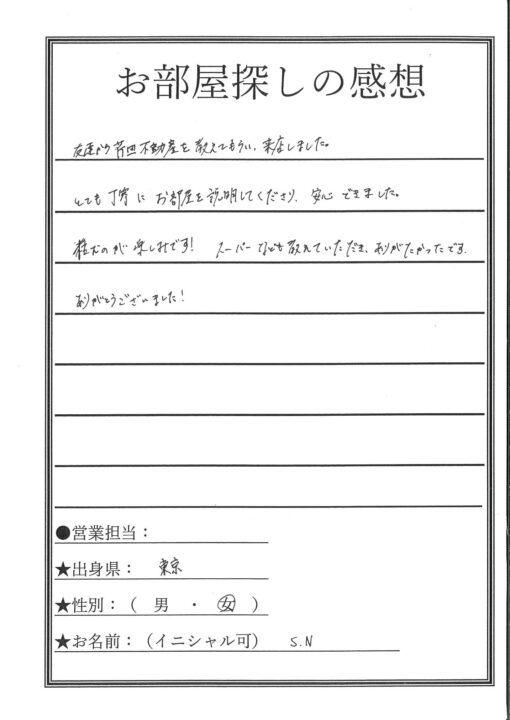 お部屋探しの感想
友達から 不動産を教えてもらい、来店しました。
とても丁寧に お部屋を説明してくださり、安心できました。
住むのが楽しみです! スーパーなども教えていただき、ありがたかったです。
ありがとうございました!
●営業担当：
★出身県： 東京
★性別：( 男 ・ 女 )
★お名前：(イニシャル可) S.N